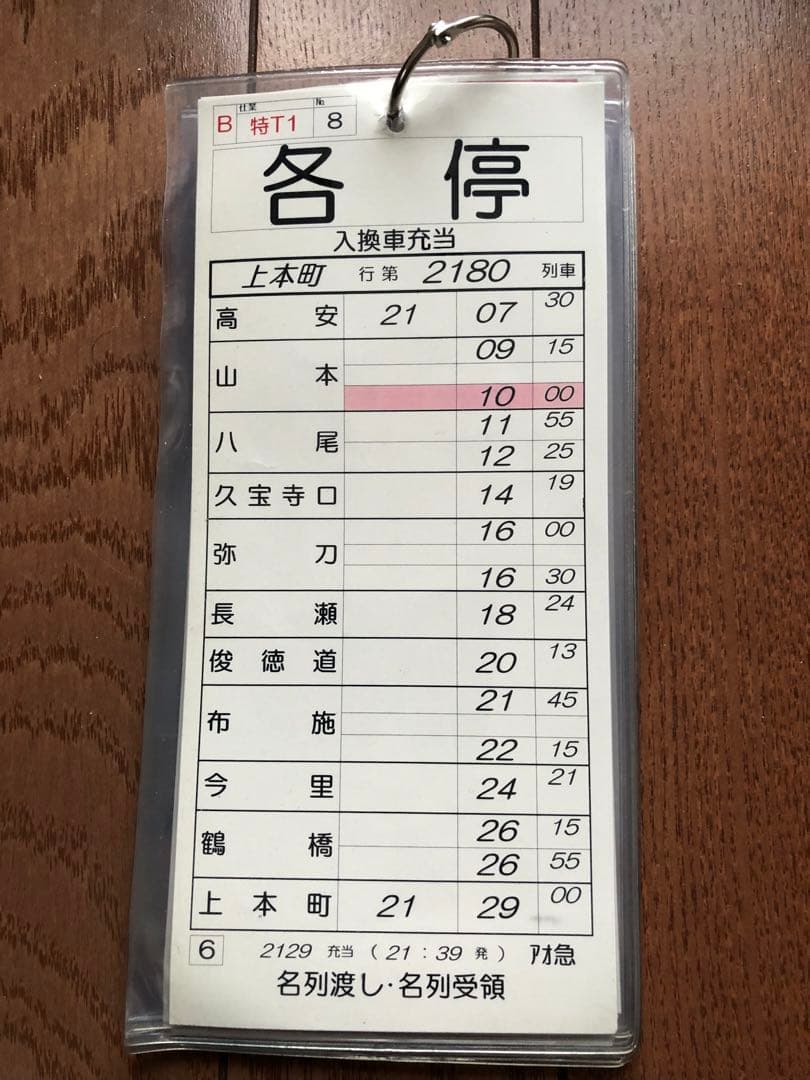 仕業 No.
B 特T1 8
各停
入換車充当
上本町 行第 2180 列車
高安 21 07 30
山本 09 15
10 00
八尾 11 55
12 25
久宝寺口 14 19
弥刀 16 00
16 30
長瀬 18 24
俊徳道 20 13
布施 21 45
22 15
今里 24 21
鶴橋 26 15
26 55
上本町 21 29 00
6 2129 充当 (21:39 発) ｱｵ急
名列渡し・名列受領